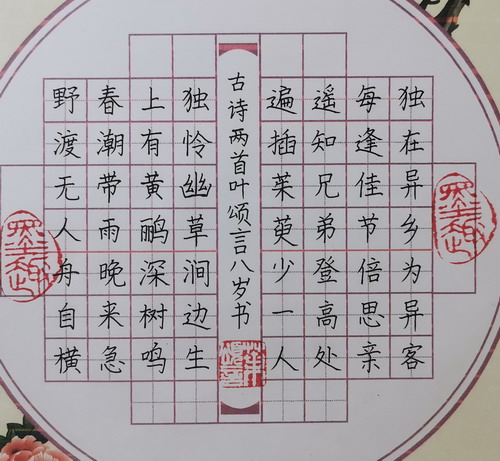 独在异乡为异客
每逢佳节倍思亲
遥知兄弟登高处
遍插茱萸少一人
古诗两首叶颂言八岁书
独怜幽草涧边生
上有黄鹂深树鸣
春潮带雨晚来急
野渡无人舟自横
墨趣
墨趣